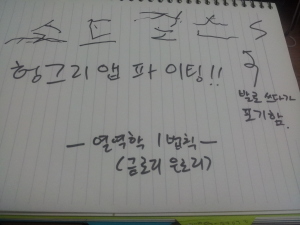 헝그리앱 파이팅!!
발로 쓰다가
포기함.
— 열역학 1법칙 —
(금로리 은로리)